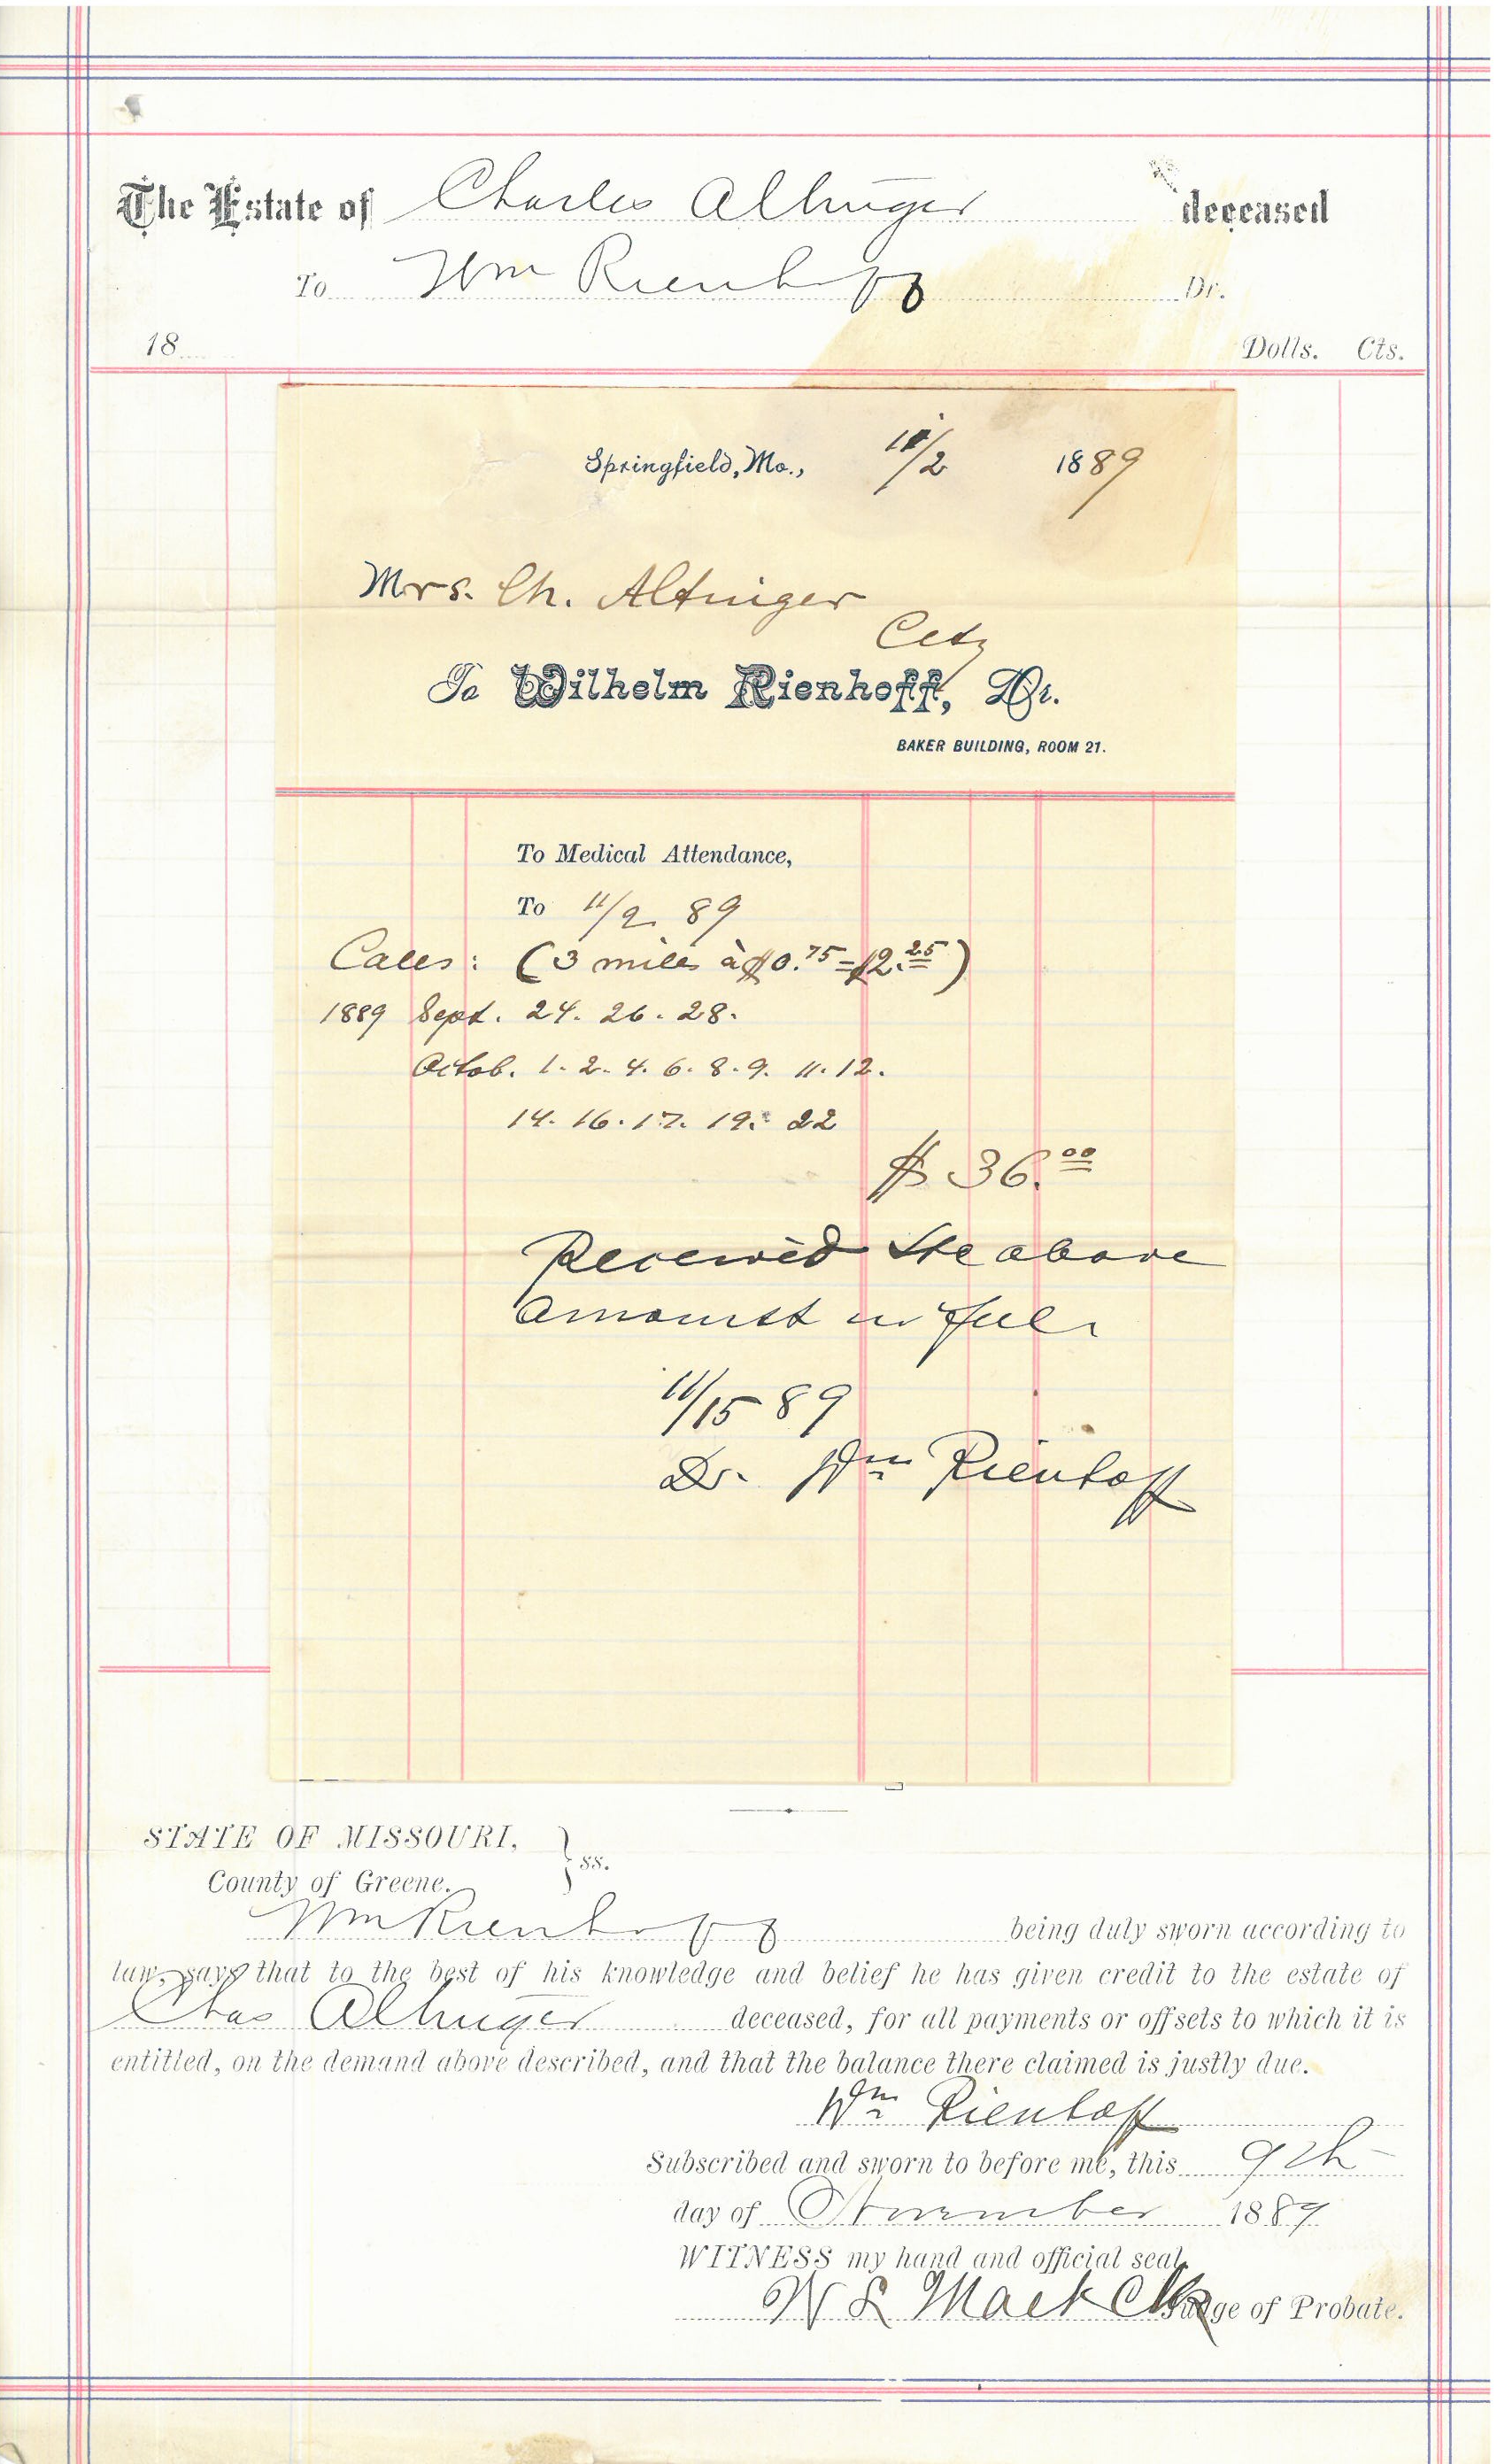 The Estate of Charles Altinger deceased
To Wm Rienhoff Dr.
18 Dolls. Cts.
Springfield, Mo., 11/2 1889
Mrs. Ch. Altinger
City
To Wilhelm Rienhoff, Dr.
BAKER BUILDING, ROOM 21.
To Medical Attendance,
To 11/2 89
Calls: (3 miles à $0.75=$2.25)
1889 Sept. 24. 26. 28.
Octob. 1. 2. 4. 6. 8. 9. 11. 12.
14. 16. 17. 19. 22
$ 36.00
Received the above
amount in full
11/15 89
Dr. Wm Rienhoff
STATE OF MISSOURI,
County of Greene. } ss.
Wm Rienhoff being duly sworn according to
law, says that to the best of his knowledge and belief he has given credit to the estate of
Chas Altinger deceased, for all payments or offsets to which it is
entitled, on the demand above described, and that the balance there claimed is justly due.
Wm Rienhoff
Subscribed and sworn to before me, this 9th
day of November 1889
WITNESS my hand and official seal,
W L Mack Clk Judge of Probate.